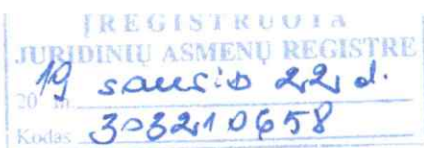 ĮREGISTRUOTA
JURIDINIŲ ASMENŲ REGISTRE
2019 m. sausio 22 d.
Kodas 303210658